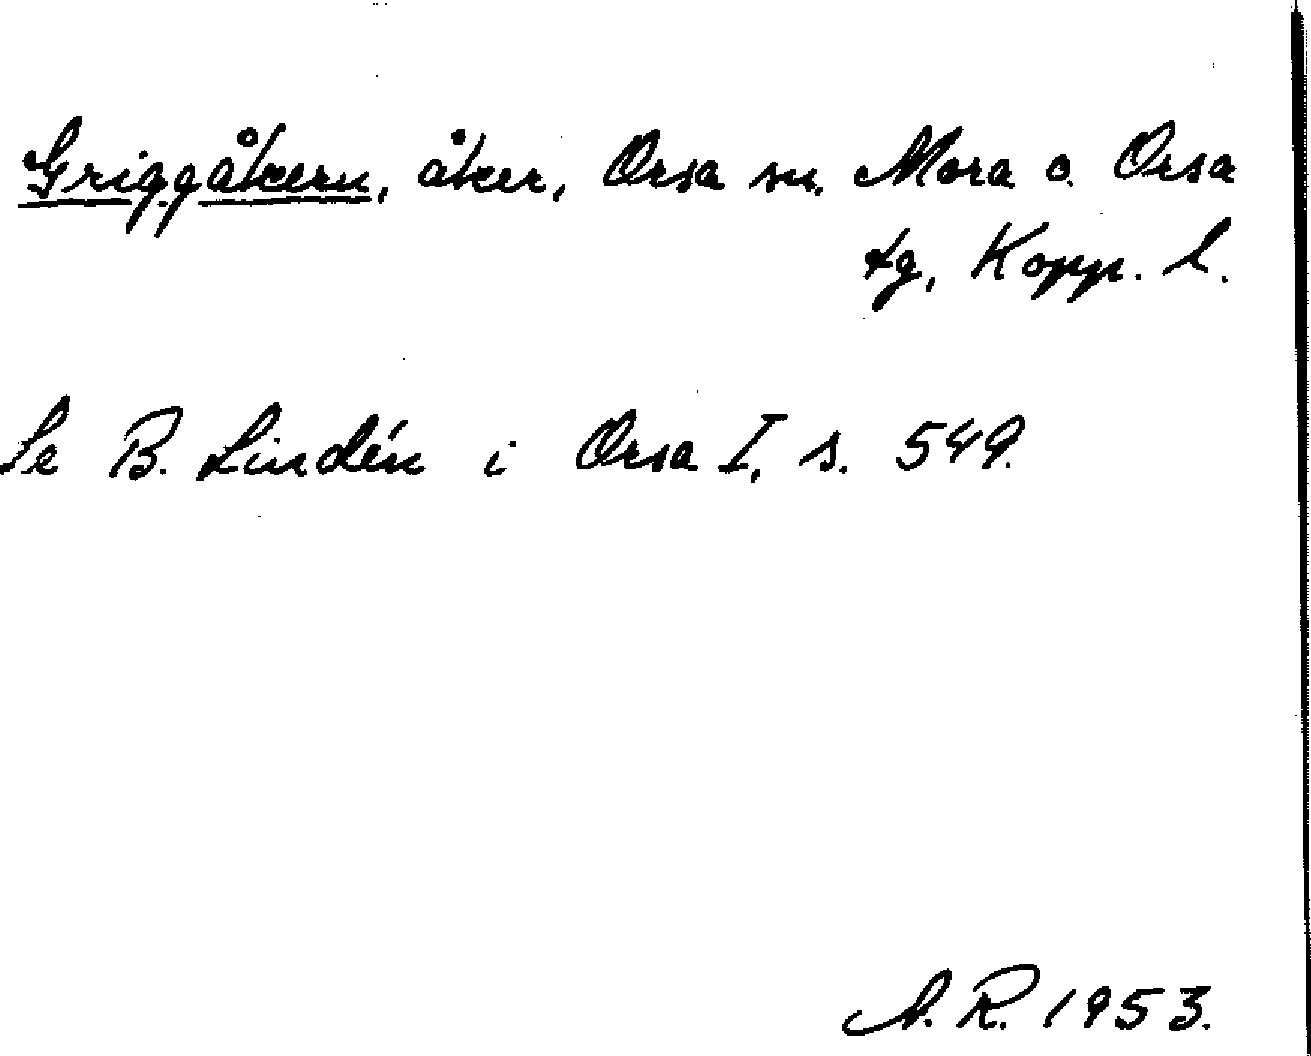 Griggåkern, åker, Orsa sn. Mora o. Orsa
tg, Kopp. l.
Se B. Lindén i Orsa I, s. 549.
A. R. 1953.